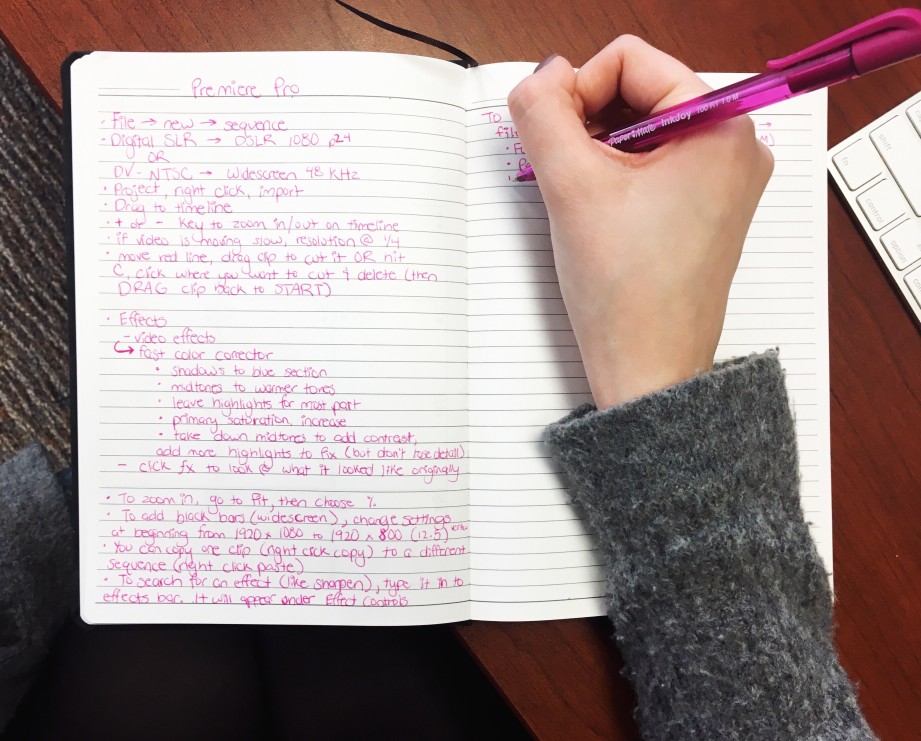 Premiere Pro
· File → new → sequence
· Digital SLR → DSLR 1080 p24
OR
DV-NTSC → widescreen 48 KHz
· Project, right click, import
· Drag to timeline
· + or - key to zoom in/out on timeline
· if video is moving slow, resolution @ 1/4
· move red line, drag clip to cut it OR hit
C, click where you want to cut & delete (then
DRAG clip back to START)
· Effects
- video effects
↳ fast color corrector
· shadows to blue section
· midtones to warmer tones
· leave highlights for most part
· primary saturation, increase
· take down midtones to add contrast,
add more highlights to fix (but don't lose detail)
- click fx to look @ what it looked like originally
· To zoom in, go to Fit, then choose %
· To add black bars (widescreen), change settings
at beginning from 1920 x 1080 to 1920 x 800 (12.5)
· You can copy one clip (right click copy) to a different
sequence (right click paste)
· To search for an effect (like sharpen), type it in to
effects bar. It will appear under Effect Controls
TO
PaperMate InkJoy 100 RT 1.0 M
fn
control
option